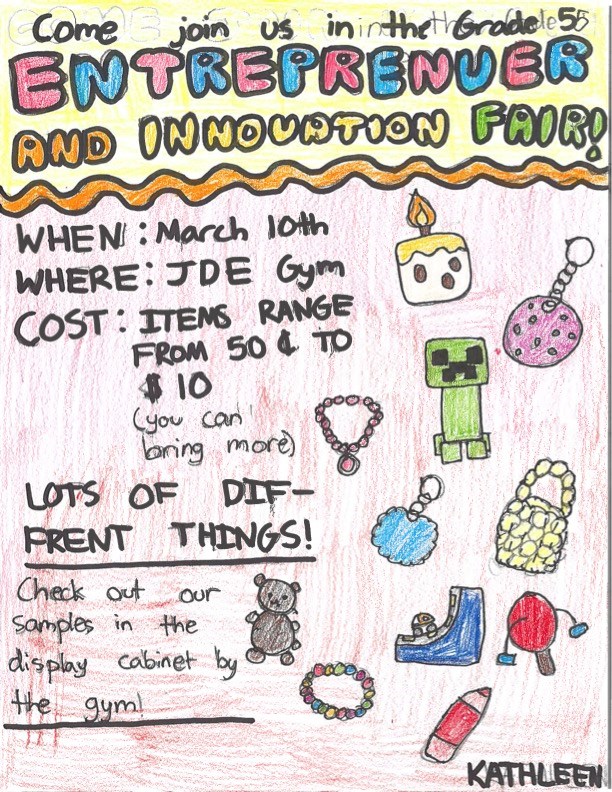 Come join us in the Grade 5
ENTREPRENUER
AND INNOVATION FAIR!
WHEN: March 10th
WHERE: JDE Gym
COST: ITEMS RANGE
FROM 50 ¢ TO
$ 10
(you can
bring more)
LOTS OF DIF-
FRENT THINGS!
Check out our
samples in the
display cabinet by
the gym!
KATHLEEN